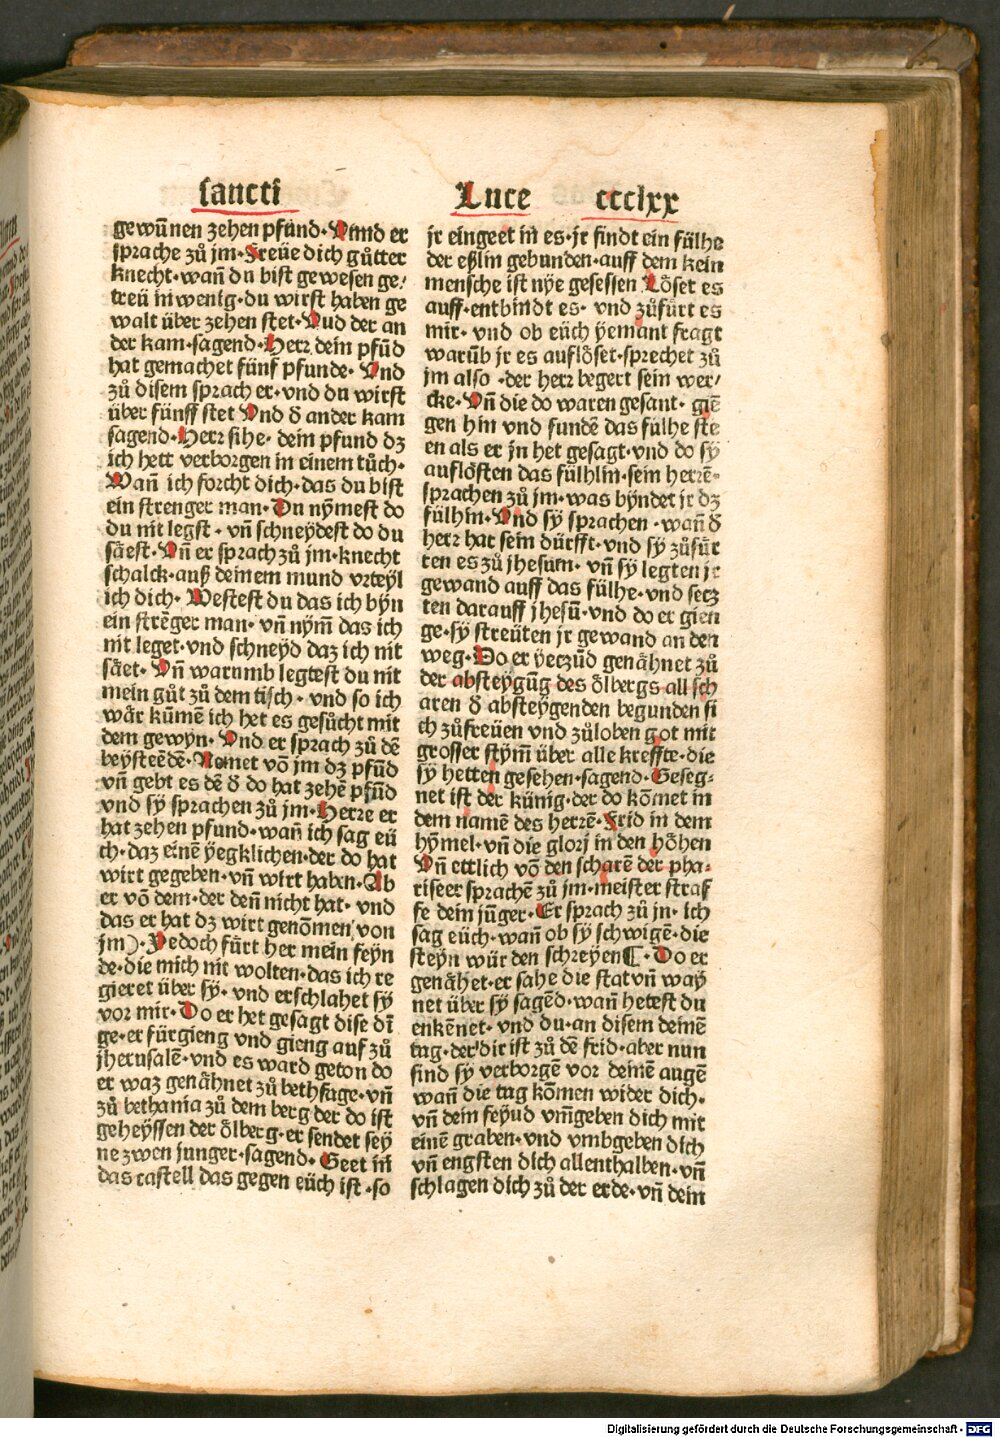 sancti
gewūnen zehen pfund· Vnnd er
sprache zů jm· Freüe dich gůtter
knecht· wañ du bist gewesen ge/
treü in wenig· du wirst haben ge
walt über zehen stet· Vnd der an
der kam· sagend· Herr dein pfūd
hat gemachet fünf pfunde· Vnd
zů disem sprach er· vnd du wirst
über fünff stet Vnd ð ander kam
sagend· Herr sihe· dein pfund dz
ich hett verborgen in einem tůch·
Wañ ich forcht dich· das du bist
ein strenger man· Du nÿmest do
du nit legst · vñ schneÿdest do du
säest· Vñ er sprach zů jm· knecht
schalck· auß deinem mund vrteÿl
ich dich· Westest du das ich bÿn
ein strēger man· vñ nÿm̄ das ich
nit leget· vnd schneÿd daz ich nit
säet· Vñ warumb legtest du nit
mein gůt zů dem tisch· vnd so ich
wär kūmē ich het es gesůcht mit
dem gewÿn· Vnd er sprach zů dē
beÿsteēdē· Nemet vō jm dz pfūd
vñ gebt es dē ð do hat zehē pfūd
vnd sÿ sprachen zů jm· Herre er
hat zehen pfund· wañ ich sag eü
ch· daz einē ÿegklichen· der do hat
wirt gegeben· vñ wirt haben· Ab
er vō dem· der deñ nicht hat· vnd
das er hat dz wirt genōmen von
jm)· Yedoch fürt her mein feÿn
de· die mich nit wolten· das ich re
gieret über sÿ· vnd erschlahet sÿ
vor mir· Do er het gesagt dise dī
ge· er fürgieng vnd gieng auf zů
jherusalē· vnd es ward geton do
er waz genähnet zů bethfage· vñ
zů bethania zů dem berg der do ist
geheÿssen der ölberg· er sendet seÿ
ne zwen junger· sagend· Geet in
das castell das gegen eüch ist· so
Luce ccclxx
jr eingeet in es· jr findt ein fülhe
der eßlin gebunden· auff dem kein
mensche ist nÿe gesessen Löset es
auff· entbindt es· vnd zůfürt es
mir· vnd ob eüch ÿemant fragt
warūb jr es auflöset· sprechet zů
jm also · der herr begert sein wer/
cke· Vñ die do waren gesant· giē
gen hin vnd fundē das fülhe ste
en als er jn het gesagt· vnd do sÿ
auflösten das fülhlin· sein herrē⸗
sprachen zů jm· was bÿndet jr dz
fülhin· Vnd sÿ sprachen · wañ ð
herr hat sein dürfft· vnd sÿ zůfür
ten es zů jhesum· vñ sÿ legten jr
gewand auff das fülhe· vnd secz
ten darauff jhesū· vnd do er gien
ge· sÿ streüten jr gewand an den
weg· Do er ÿeczūd genähnet zů
der absteÿgūg des ölbergs all sch
aren ð absteÿgenden begunden si
ch zůfreüen vnd zůloben got mit
grosser stÿm̄ über alle kreffte· die
sÿ hetten gesehen· sagend· Geseg⸗
net ist der künig· der do kōmet in
dem namē des herrē· Frid in dem
hÿmel· vñ die glorj in den höhen
Vñ ettlich vō den scharē der pha⸗
riseer sprachē zů jm· meister straf
fe dein jūger· Er sprach zů jn· ich
sag eüch· wañ ob sÿ schwigē· die
steÿn wür den schreÿen ¶· Do er
genähet· er sahe die stat vñ waÿ
net über sÿ sagēd· wañ hetest du
enkēnet· vnd du· an disem deinē
tag· der dir ist zů dē frid· aber nun
sind sÿ verborgē vor deinē augē
wañ die tag kōmen wider dich·
vñ dein feÿnd vm̄geben dich mit
einē graben· vnd vmbgeben dich
vñ engsten dich allenthalben· vñ
schlagen dich zů der erde· vñ dein
Digitalisierung gefördert durch die Deutsche Forschungsgemeinschaft - DFG